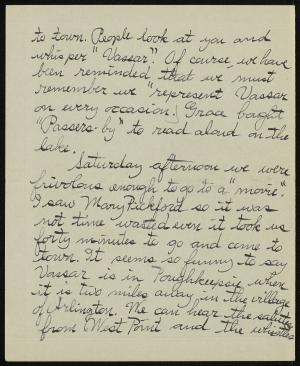 to town. People look at you and
whisper "Vassar". Of course we have
been reminded that we must
remember we "represent Vassar
on every occasion.) Grace bought
"Passers-by" to read aloud on the
lake.
Saturday afternoon we were
frivolous enough to go to a "movie".
I saw Mary Pickford so it was
not time wasted even it took us
forty minutes to go and come to
town. It seems so funny to say
Vassar is in Poughkeepsie when
it is two miles away in the village
of Arlington. We can hear the salutes
from West Point and the whistles